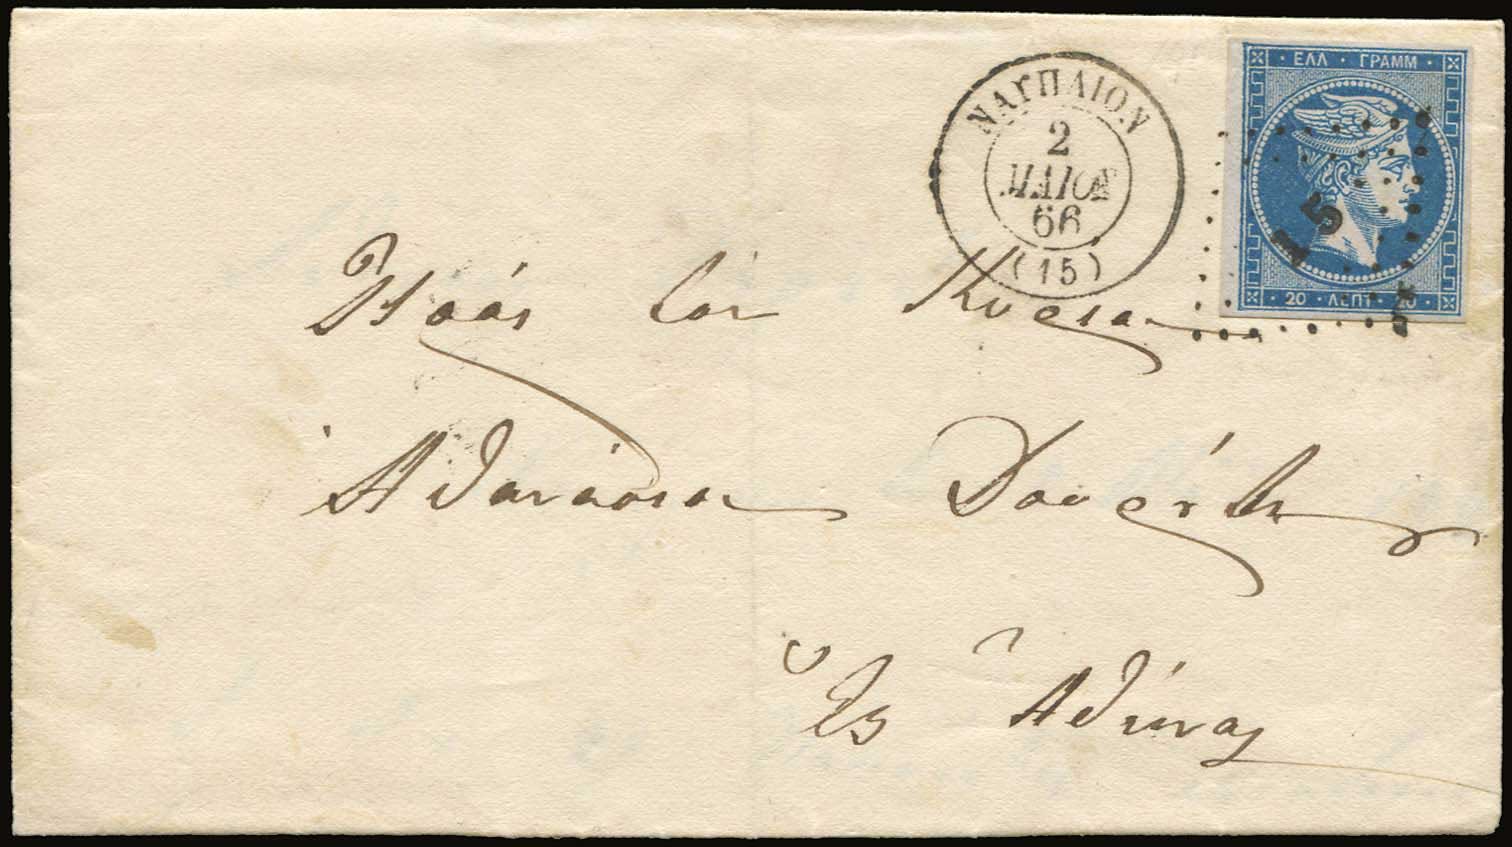 ΕΛΛ · ΓΡΑΜΜ
ΝΑΥΠΛΙΟΝ
2
ΜΑΙΟΥ
66
(15)
15
20 · ΛΕΠΤ · 20
Πρὸς τὸν Κύριον
Ἀθανάσιον
Εἰς Ἀθήνας